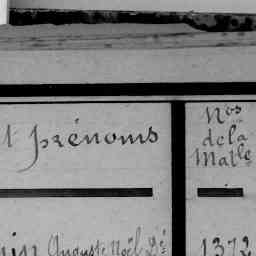 t prénoms
Nos
de la
Matle
in Auguste Noël Dé
1372